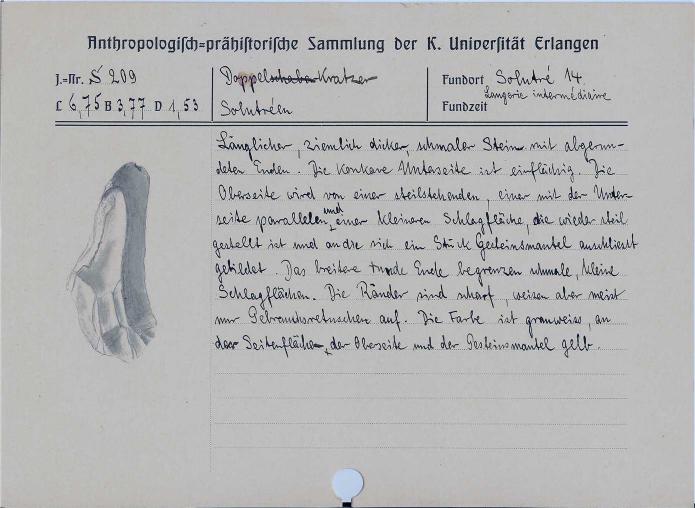 Anthropologisch=prähistorische Sammlung der K. Universität Erlangen
J.=Nr. S 209
Doppelschaber Kratzer
Fundort Solutré 14.
Laugerie intermédiaire
L 6,75 B 3,77 D 1,53
Solutréen
Fundzeit
Länglicher, ziemlich dicker, schmaler Stein mit abgerun-
deten Enden. Die konkave Unterseite ist einflächig. Die
Oberseite wird von einer steilstehenden, einer mit der Unter-
seite parallelen und einer kleineren Schlagfläche, die wieder steil
gestellt ist und an die sich ein Stück Gesteinsmantel anschliesst
gebildet. Das breitere runde Ende begrenzen schmale, kleine
Schlagflächen. Die Ränder sind scharf, weisen aber meist
nur Gebrauchsretuschen auf. Die Farbe ist grauweiss, an
der Seitenfläche, der Oberseite und der Gesteinsmantel gelb.